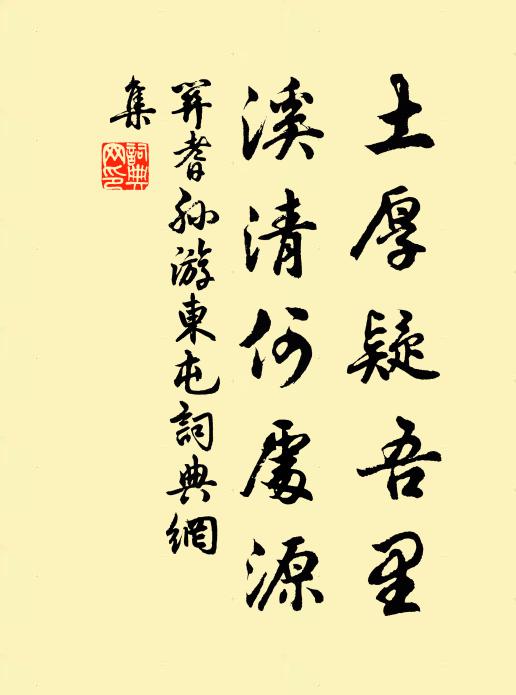 土厚疑吾里
溪清何處源
關耆孫游東屯詞典網
集
詞典
网印